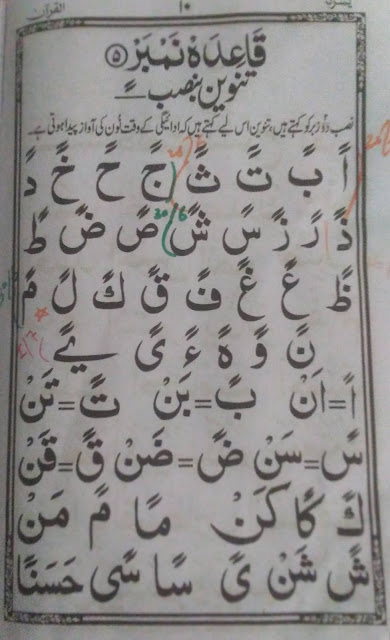 ۱۰ القرآن
قَاعِدَہ نَمبَرْ ۵
تنوین بنصب ــً
نصب دو زبر کو کہتے ہیں، تنوین اس لیے کہتے ہیں کہ ادائیگی کے وقت نُون کی آواز پیدا ہوتی ہے۔
اً بً تً ثً جً حً خً دً
ذً رً زً سً شً صً ضً طً
ظً عً غً فً قً كً لً مً
نً وً هً ءً یً ےً
اً=اَنْ بً=بَنْ تً=تَنْ
سً=سَنْ ضً=ضَنْ قً=قَنْ
كً كًا كَنْ مًا مً مَنْ
شً شَنْ یً سًا سًی حَسَنًا